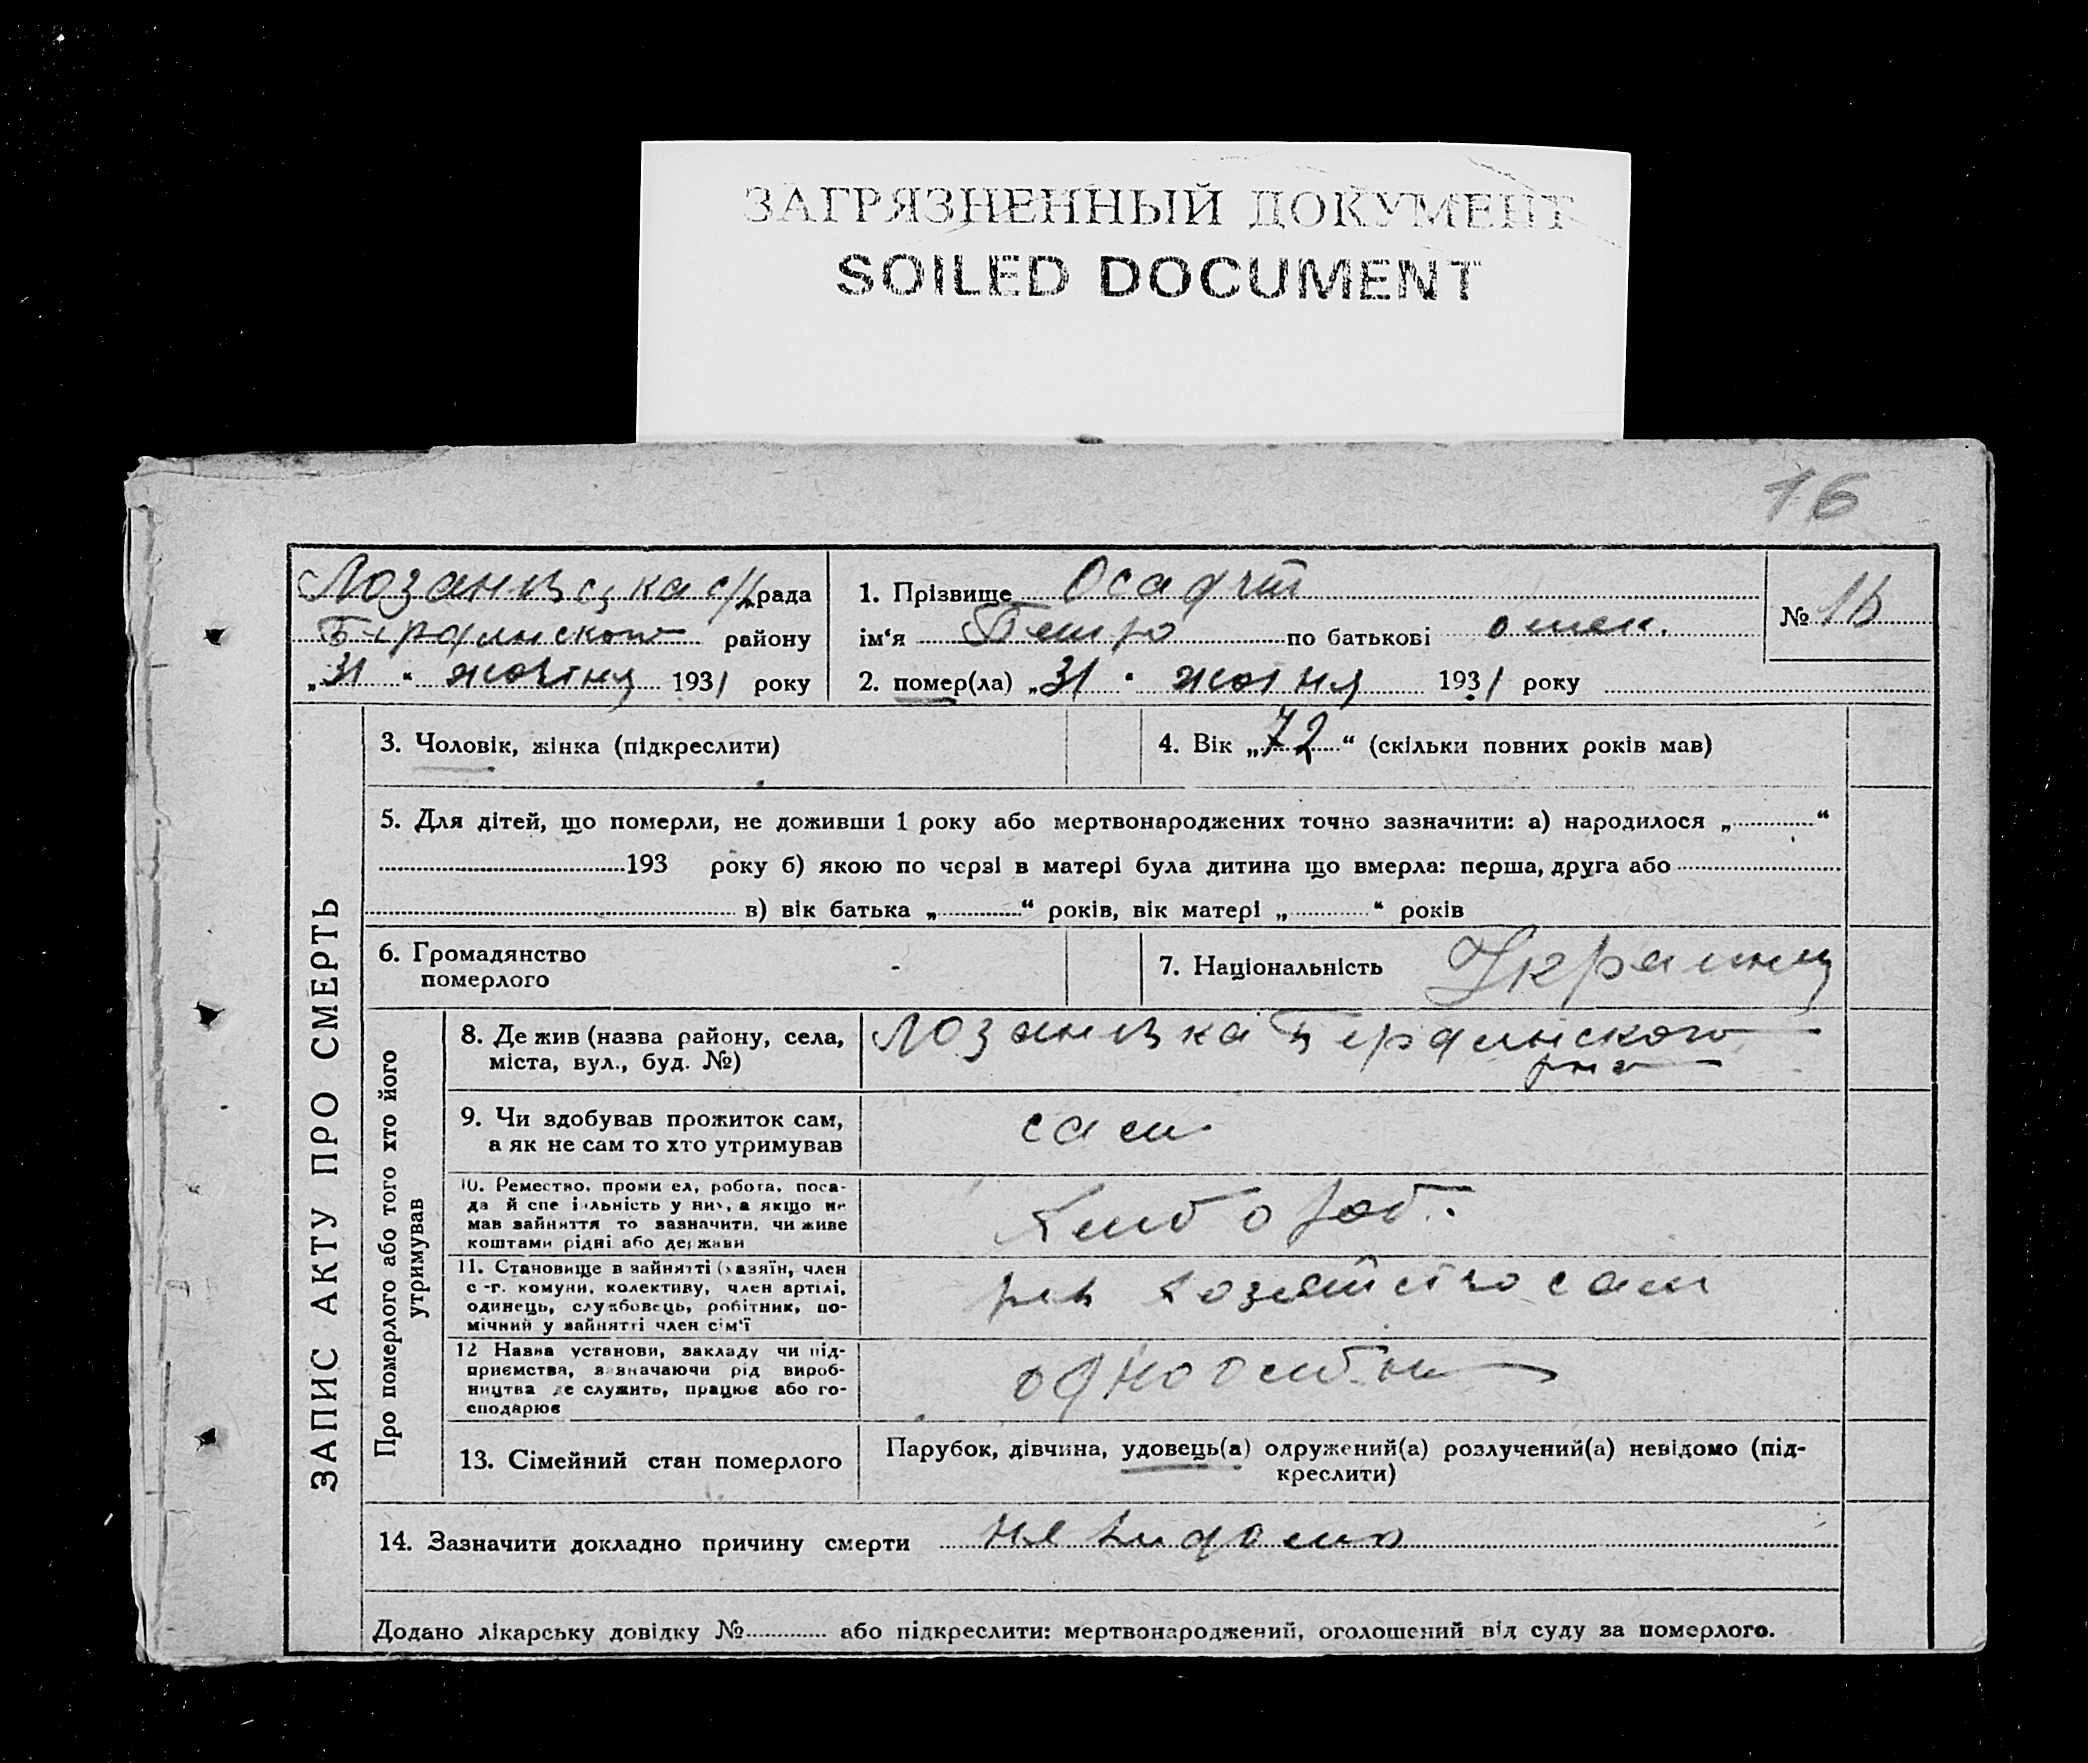 ЗАГРЯЗНЕННЫЙ ДОКУМЕНТ
SOILED DOCUMENT
16
Лозанівська с/рада
району
„31“ жовтня 1931 року
1. Прізвище Осадчий
ім‘я Петро по батькові
2. помер(ла) „31“ жовтня 1931 року
№
ЗАПИС АКТУ ПРО СМЕРТЬ
3. Чоловік, жінка (підкреслити)
4. Вік „72“ (скільки повних років мав)
5. Для дітей, що померли, не доживши 1 року або мертвонароджених точно зазначити: а) народилося „ “
193 року б) якою по черзі в матері була дитина що вмерла: перша, друга або
в) вік батька „ “ років, вік матері „ “ років
6. Громадянство
померлого
7. Національність Украинец
Про померлого або того хто його
утримував
8. Де жив (назва району, села,
міста, вул., буд. №)
Лозанівка
9. Чи здобував прожиток сам,
а як не сам то хто утримував
сам
10. Ремество, промисел, робота, поса-
да й спеціяльність у них, а якщо не
мав зайняття то зазначити, чи живе
коштами рідні або держави
Хлібороб.
11. Становище в зайнятті (хазяїн, член
с-г. комуни, колективу, член артілі,
одинець, службовець, робітник, по-
мічний у зайнятті член сім‘ї
сам
12 Назва установи, закладу чи під-
приємства, зазначаючи рід вироб-
ництва де служить, працює або го-
сподарює
13. Сімейний стан померлого
Парубок, дівчина, удовець(а) одружений(а) розлучений(а) невідомо (під-
креслити)
14. Зазначити докладно причину смерти
Додано лікарську довідку № або підкреслити: мертвонароджений, оголошений від суду за померлого.